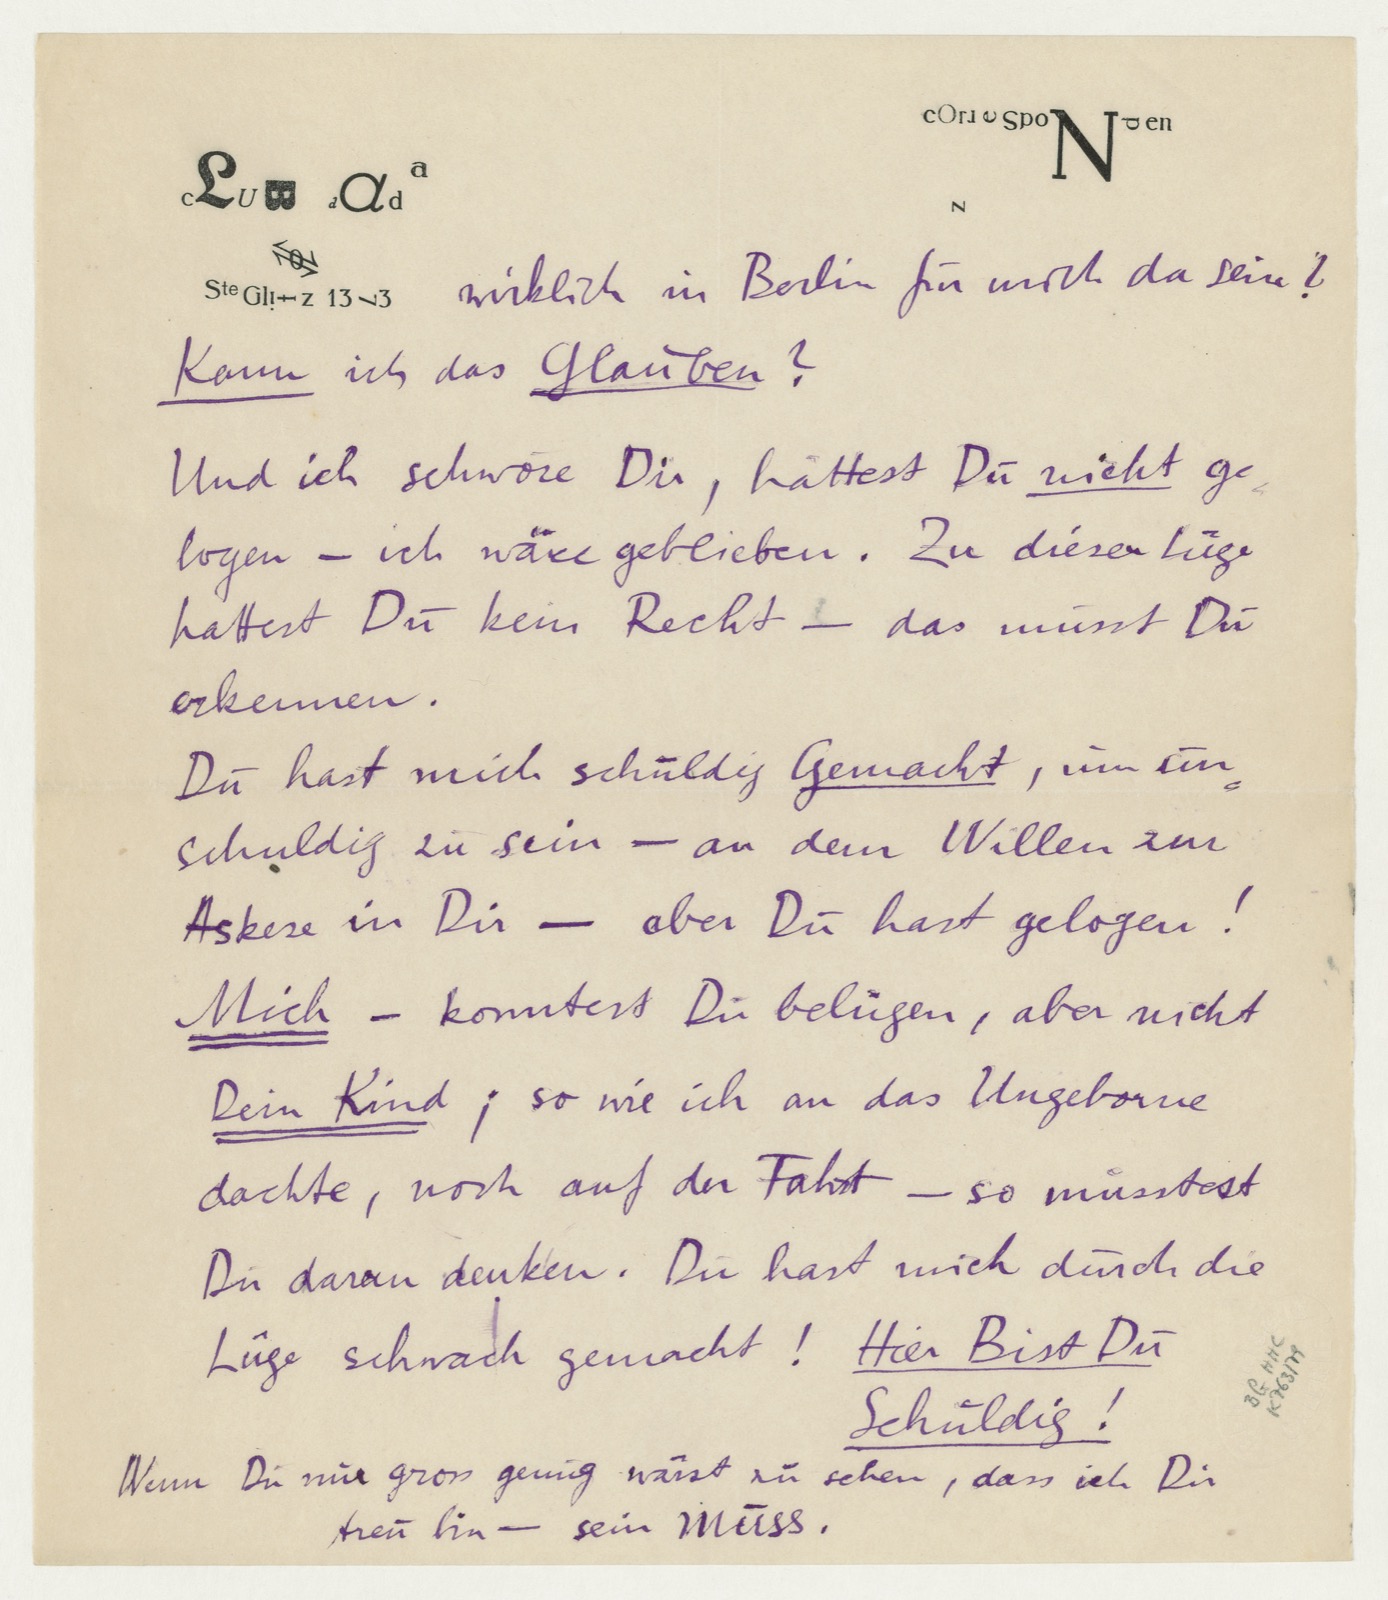 cOrresPoNden
z
cLUB dAda
Steglitz 13 73 wirklich in Berlin für mich da sein?
Kann ich das Glauben?
Und ich schwöre Dir, hättest Du nicht ge-
logen – ich wäre geblieben. Zu dieser Lüge
hattest Du kein Recht – das musst Du
erkennen.
Du hast mich schuldig Gemacht, um un-
schuldig zu sein – an dem Willen zur
Askese in Dir – aber Du hast gelogen!
Mich – konntest Du belügen, aber nicht
Dein Kind; so wie ich an das Ungeborne
dachte, noch auf der Fahrt – so musstest
Du daran denken. Du hast mich durch die
Lüge schwach gemacht! Hier Bist Du
Schuldig!
Wenn Du nur gross genug wärst zu sehen, dass ich Dir
treu bin – sein MUSS.
BG HHC
K 763/79